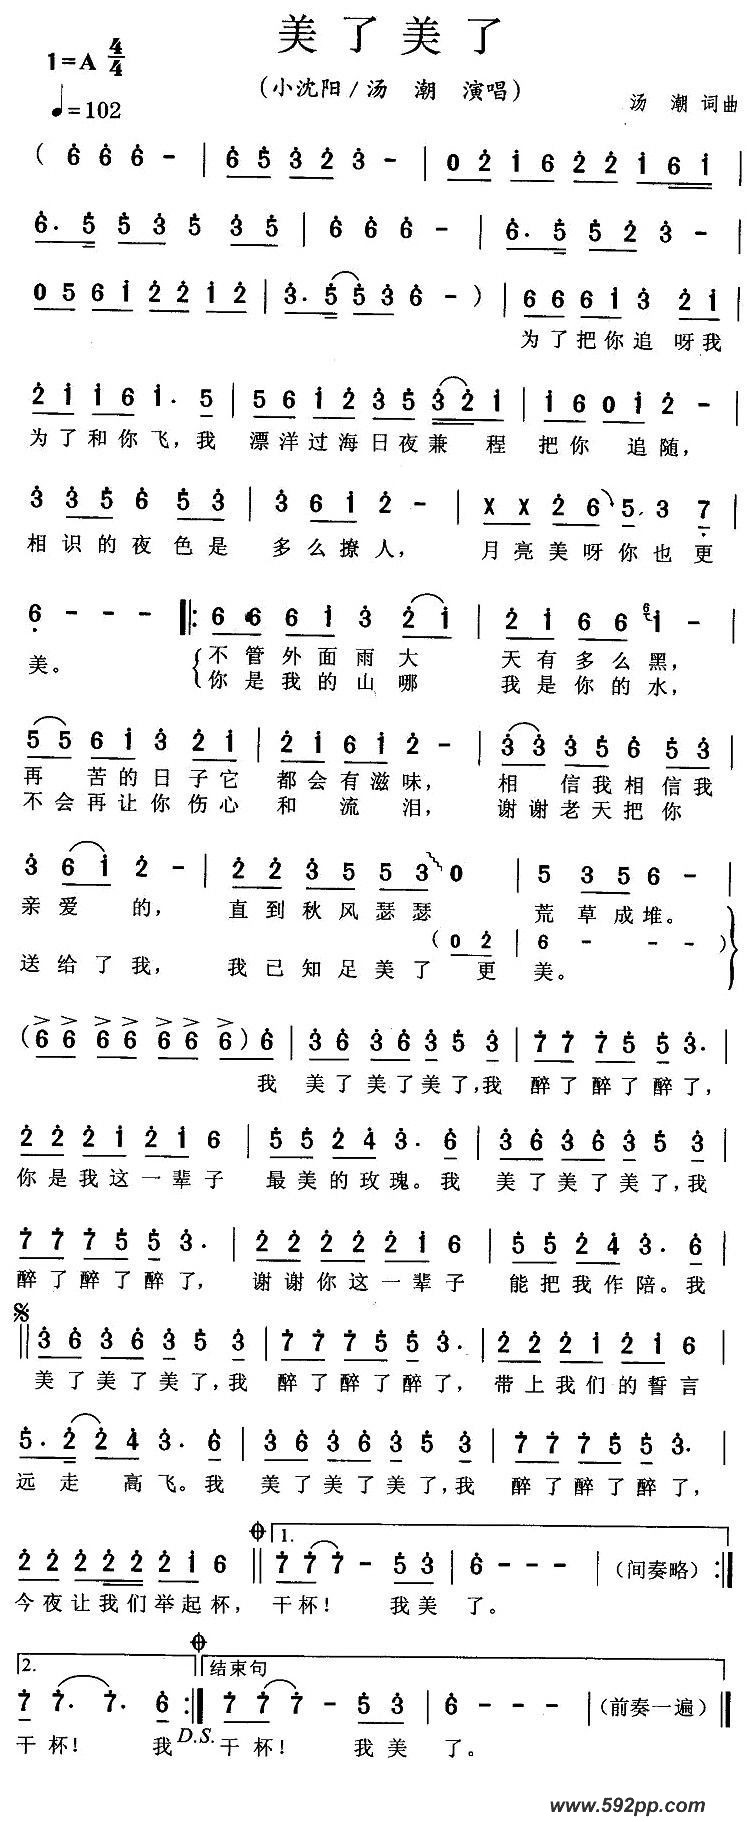 美了美了
1=A 4/4
♩=102
(小沈阳/汤 潮 演唱)
汤 潮 词曲
( 6 6 6 - | 6 5 3 2 3 - | 0 2 1 6 2 2 1 6 1 |
6· 5 5 3 5 3 5 | 6 6 6 - | 6· 5 5 2 3 - |
0 5 6 1 2 2 1 2 | 3· 5 5 3 6 - ) | 6 6 6 1 3 2 1 |
为了把你追呀我
2 1 1 6 1· 5 | 5 6 1 2 3 5 3 2 1 | 1 6 0 1 2 - |
为了和你飞,我 漂洋过海日夜兼 程 把你 追随,
3 3 5 6 5 3 | 3 6 1 2 - | X X 2 6 5 3 7 |
相识的夜色是 多么撩人, 月亮美呀你也更
6 - - - ‖: 6 6 6 1 3 2 1 | 2 1 6 6 6 1 - |
美。 不管外面雨大 天有多么黑,
你是我的山哪 我是你的水,
5 5 6 1 3 2 1 | 2 1 6 1 2 - | 3 3 3 5 6 5 3 |
再 苦的日子它 都会有滋味, 相 信我相信我
不会再让你伤心 和 流 泪, 谢谢老天把你
3 6 1 2 - | 2 2 3 5 5 3 0 | 5 3 5 6 - |
亲爱 的, 直到秋风瑟瑟 荒草成堆。
( 0 2 | 6 - - - )
送给了我, 我已知足美了 更 美。
( 6 6 6 6 6 6 6 ) 6 | 3 6 3 6 3 5 3 | 7 7 7 5 5 3· |
我 美了美了美了,我 醉了醉了醉了,
2 2 2 1 2 1 6 | 5 5 2 4 3· 6 | 3 6 3 6 3 5 3 |
你是我这一辈子 最美的玫瑰。我 美了美了美了,我
7 7 7 5 5 3· | 2 2 2 2 2 1 6 | 5 5 2 4 3· 6 |
醉了醉了醉了, 谢谢你这一辈子 能把我作陪。我
𝄋
‖ 3 6 3 6 3 5 3 | 7 7 7 5 5 3· | 2 2 2 1 2 1 6 |
美了美了美了,我 醉了醉了醉了, 带上我们的誓言
5· 2 2 4 3· 6 | 3 6 3 6 3 5 3 | 7 7 7 5 5 3· |
远走 高飞。我 美了美了美了,我 醉了醉了醉了,
𝄌 1.
2 2 2 2 2 2 1 6 ‖ 7 7 7 - 5 3 | 6 - - - | (间奏略) :‖
今夜让我们举起杯, 干杯! 我美 了。
2. 𝄌 结束句
7 7· 7· 6 :‖ 7 7 7 - 5 3 | 6 - - - (前奏一遍) ‖
干杯! 我 D.S. 干杯! 我美 了。
www.592pp.com